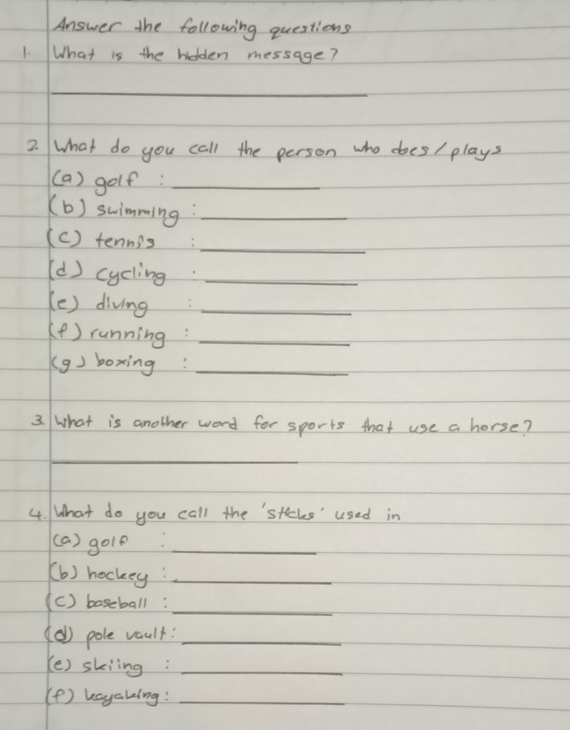 Answer the following questions
1. What is the hidden message?
2. What do you call the person who does/plays
(a) golf :
(b) swimming :
(c) tennis :
(d) cycling :
(e) diving :
(f) running :
(g) boxing :
3. What is another word for sports that use a horse?
4. What do you call the 'sticks' used in
(a) golf :
(b) hockey :
(c) baseball :
(d) pole vault :
(e) skiing :
(f) kayaking :